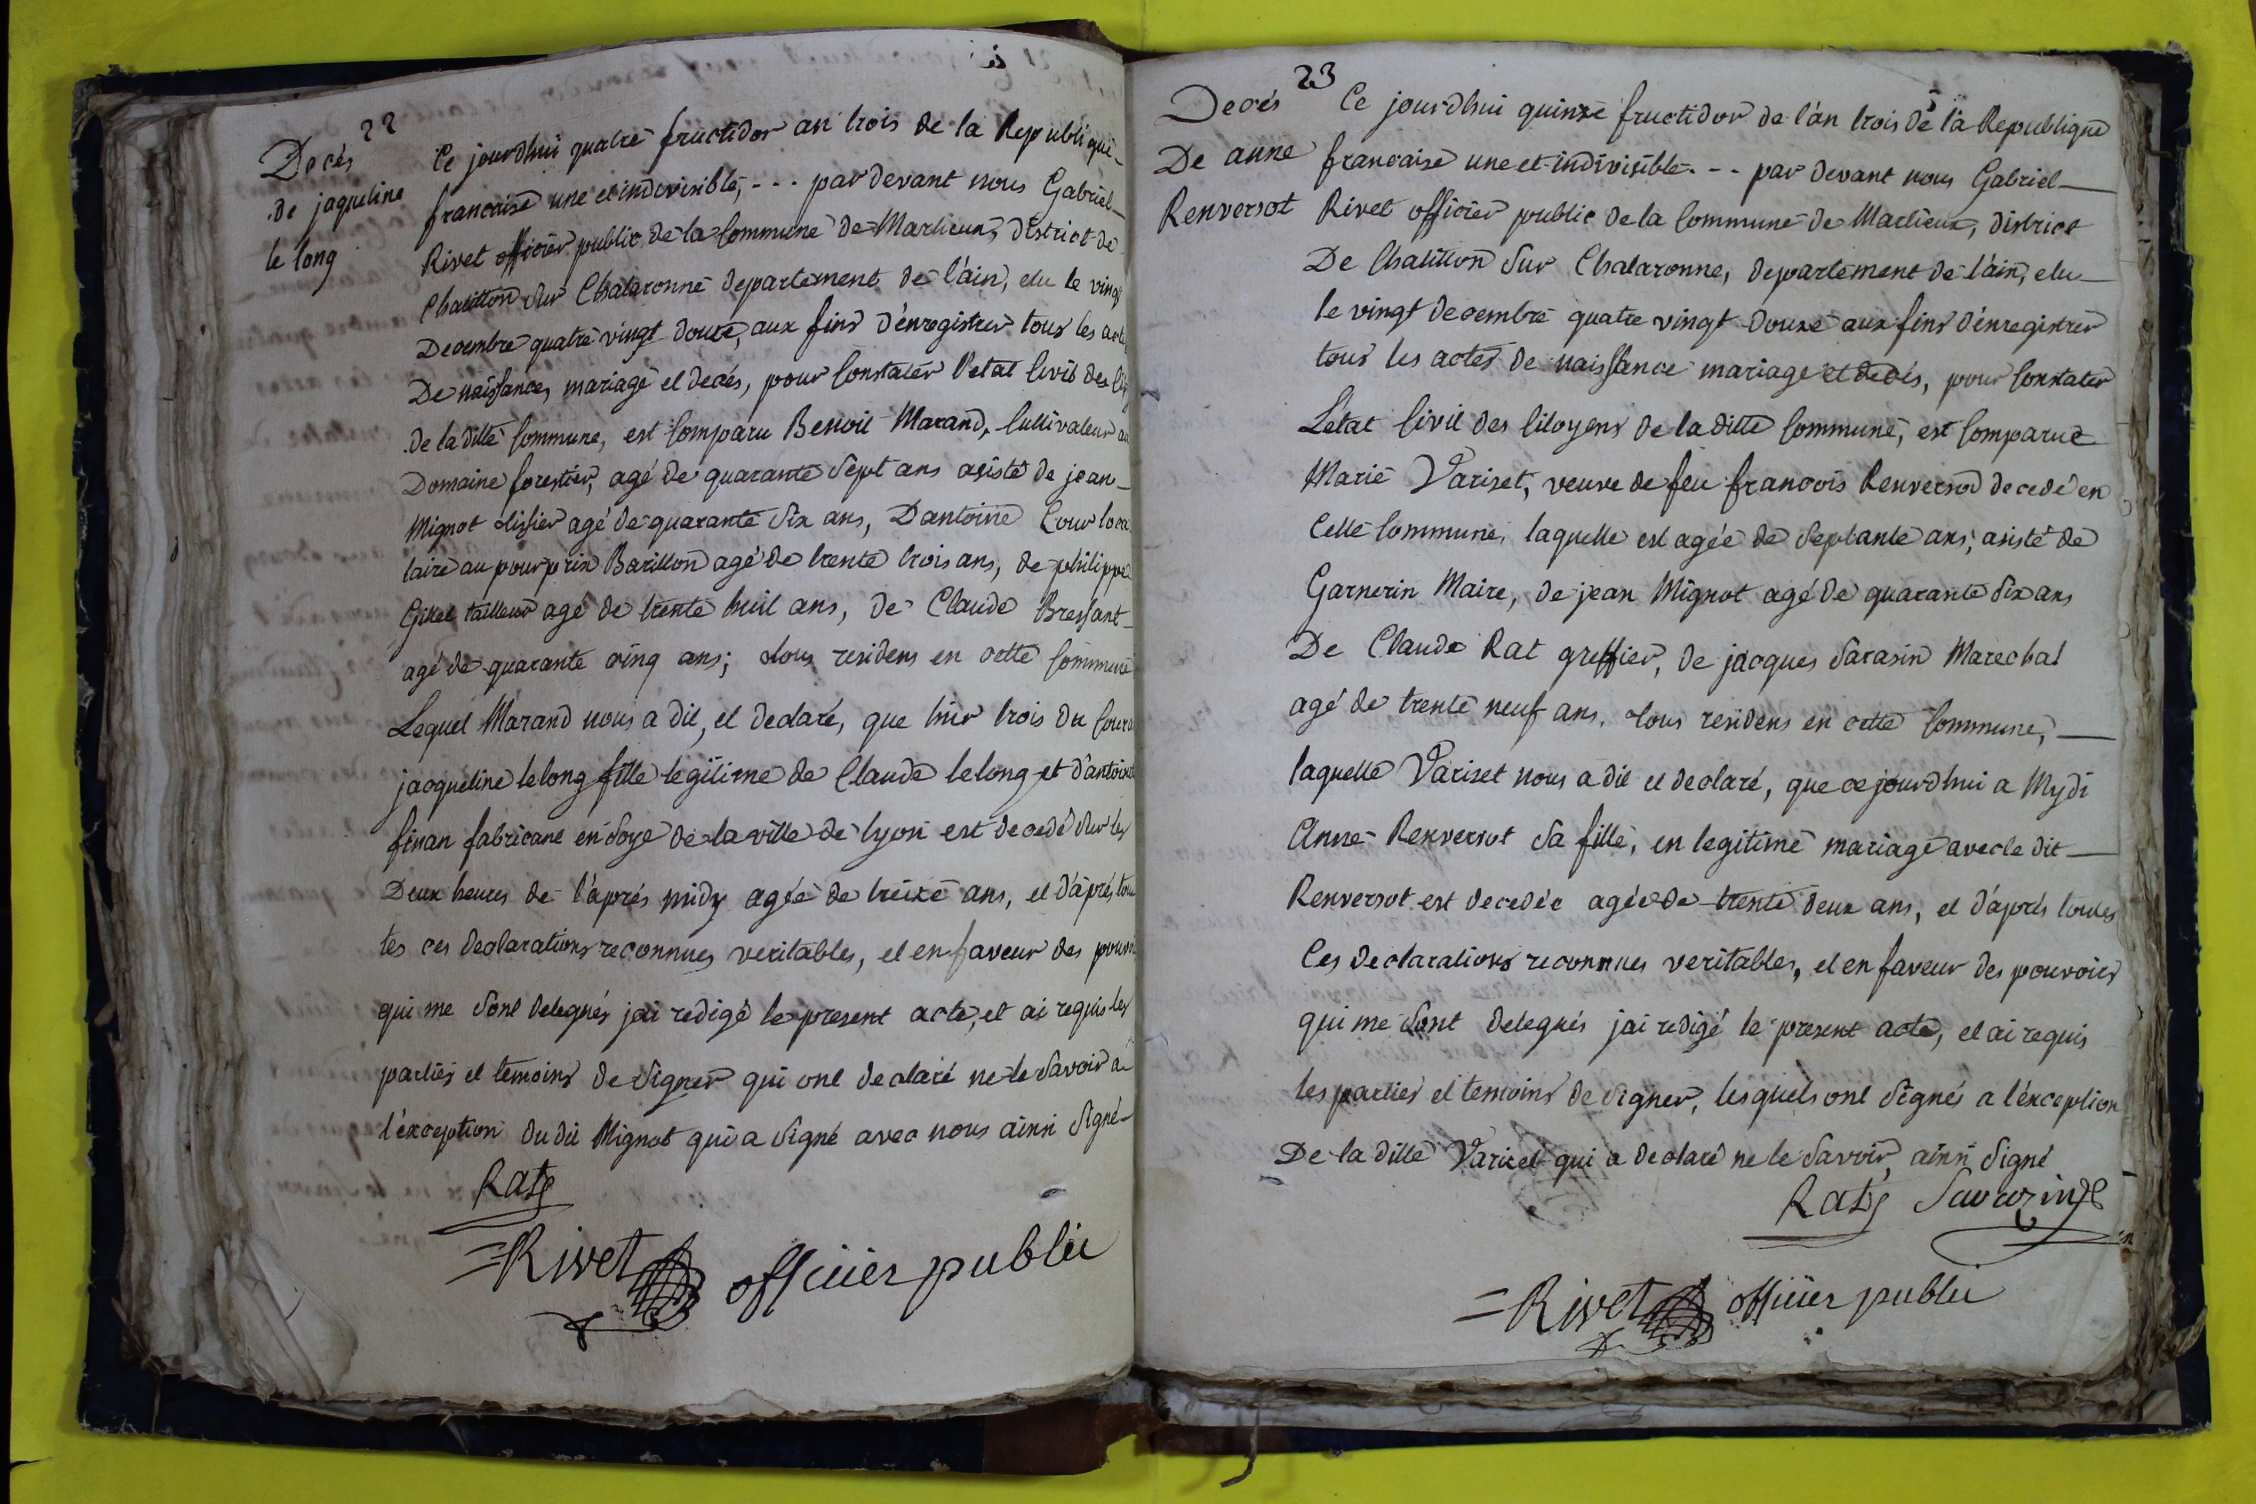 22
Decés
de jaqueline
le long
Ce jourdhui quatre fructidor an trois de la Republique
francaise une et indivisible, - - - par devant nous Gabriel
Rivet officier public de la Commune de Marlieux, district de
Chatillon sur Chalaronne departement de l'ain, elu le vingt
Decembre quatre vingt douze, aux fins d'enregistrer tous les actes
De naissances, mariage et decés, pour Constater l'etat Civil des
de la ditte Commune, est Comparu Benoit Marand, Cultivateur au
Domaine forestier, agé de quarante Sept ans asisté de jean
Mignot tissier agé de quarante Six ans, D'antoine Cour loca
taire au pourprix Barillon agé de trente trois ans, de philippe
tailleur agé de trente huit ans, de Claude Bressant
agé de quarante cinq ans; tous residens en cette Commune
Lequel Marand nous a dit, et declaré, que hier trois du
jacqueline lelong fille legitime de Claude lelong et d'antoine
finan fabricant en Soye de la ville de lyon est decedé Sur les
Deux heures de l'aprés midy agéé de treize ans, et d'aprés tou
tes ces declarations reconnues veritables, et en faveur des
qui me Sont delegués jai redigé le present acte, et ai requis les
parties et temoins de Signer qui ont declaré ne le Savoir a
l'exception du dit Mignot qui a Signé avec nous ainsi Signé
Rat
Rivet officier public
23
Decés
De anne
Renversot
Ce jourdhui quinze fructidor de l'an trois de la Republique
francaise une et indivisible. - - par devant nous Gabriel
Rivet officier public de la Commune de Marlieux, district
De Chatillon Sur Chalaronne, departement de l'ain, elu
le vingt decembre quatre vingt douze aux fins d'enregistrer
tous les actes de naissance mariage et decés, pour Constater
L'etat Civil des Citoyens de la ditte Commune, est Comparue
Marie Variset, veuve de feu francois Renversod decedé en
Cette Commune, laquelle est agée de Septante ans; asisté de
Garnerin Maire, de jean Mignot agé de quarante Six ans
De Claude Rat greffier, de jacques Sarasin Marechal
agé de trente neuf ans. tous residens en cette Commune,
laquelle Variset nous a dit et declaré, que ce jourdhui a Mydi
Anne Renversot Sa fille, en legitime mariage avec le dit
Renversot est decedée agée de trente deux ans, et d'aprés toutes
Ces declarations reconnues veritables, et en faveur des pouvoirs
qui me Sont delegués jai redigé le present acte, et ai requis
les parties et temoins de Signer, lesquels ont Signés a l'exception
De la ditte Variset qui a declaré ne le Savoir, ainsi Signé
Rat
Rivet officier public